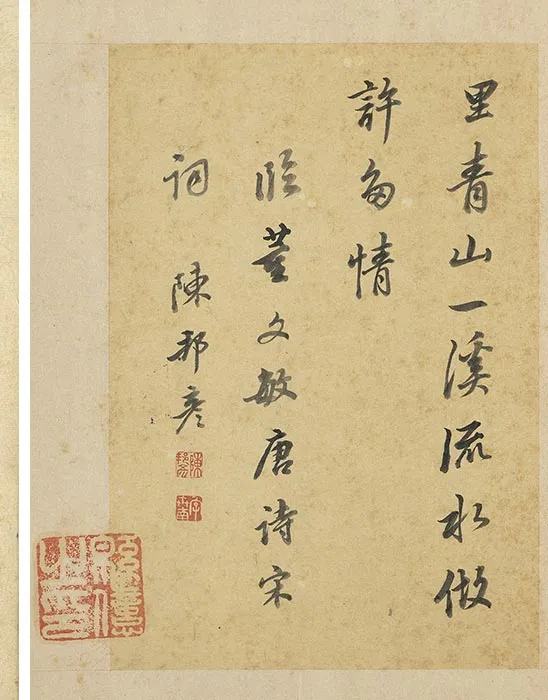 里青山一溪流水做
許多情
臨董文敏唐詩宋
詞 陳邦彥
陳邦彥